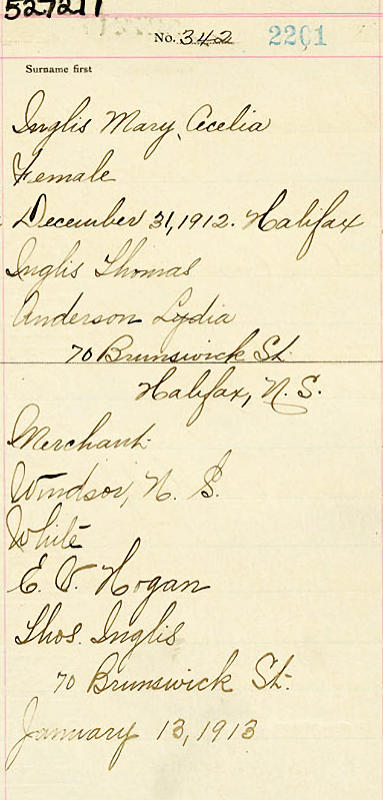 527211
No. 342 2201
Surname first
Inglis Mary Cecelia
Female
December 31, 1912. Halifax
Inglis Thomas
Anderson Lydia
70 Brunswick St.
Halifax, N. S.
Merchant
Windsor, N. S.
White
E. V. Hogan
Thos. Inglis
70 Brunswick St.
January 13, 1913